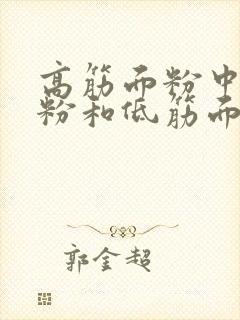 高筋面粉中
粉和低筋面
郭金超